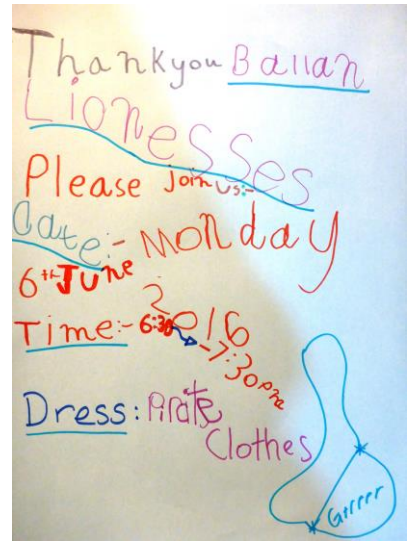 Thankyou Ballan
Lionesses
Please Join us:-
Date:- Monday
6th June
2016
Time:- 6:30
-7:30pm
Dress: Pirate
Clothes
Grrrrr